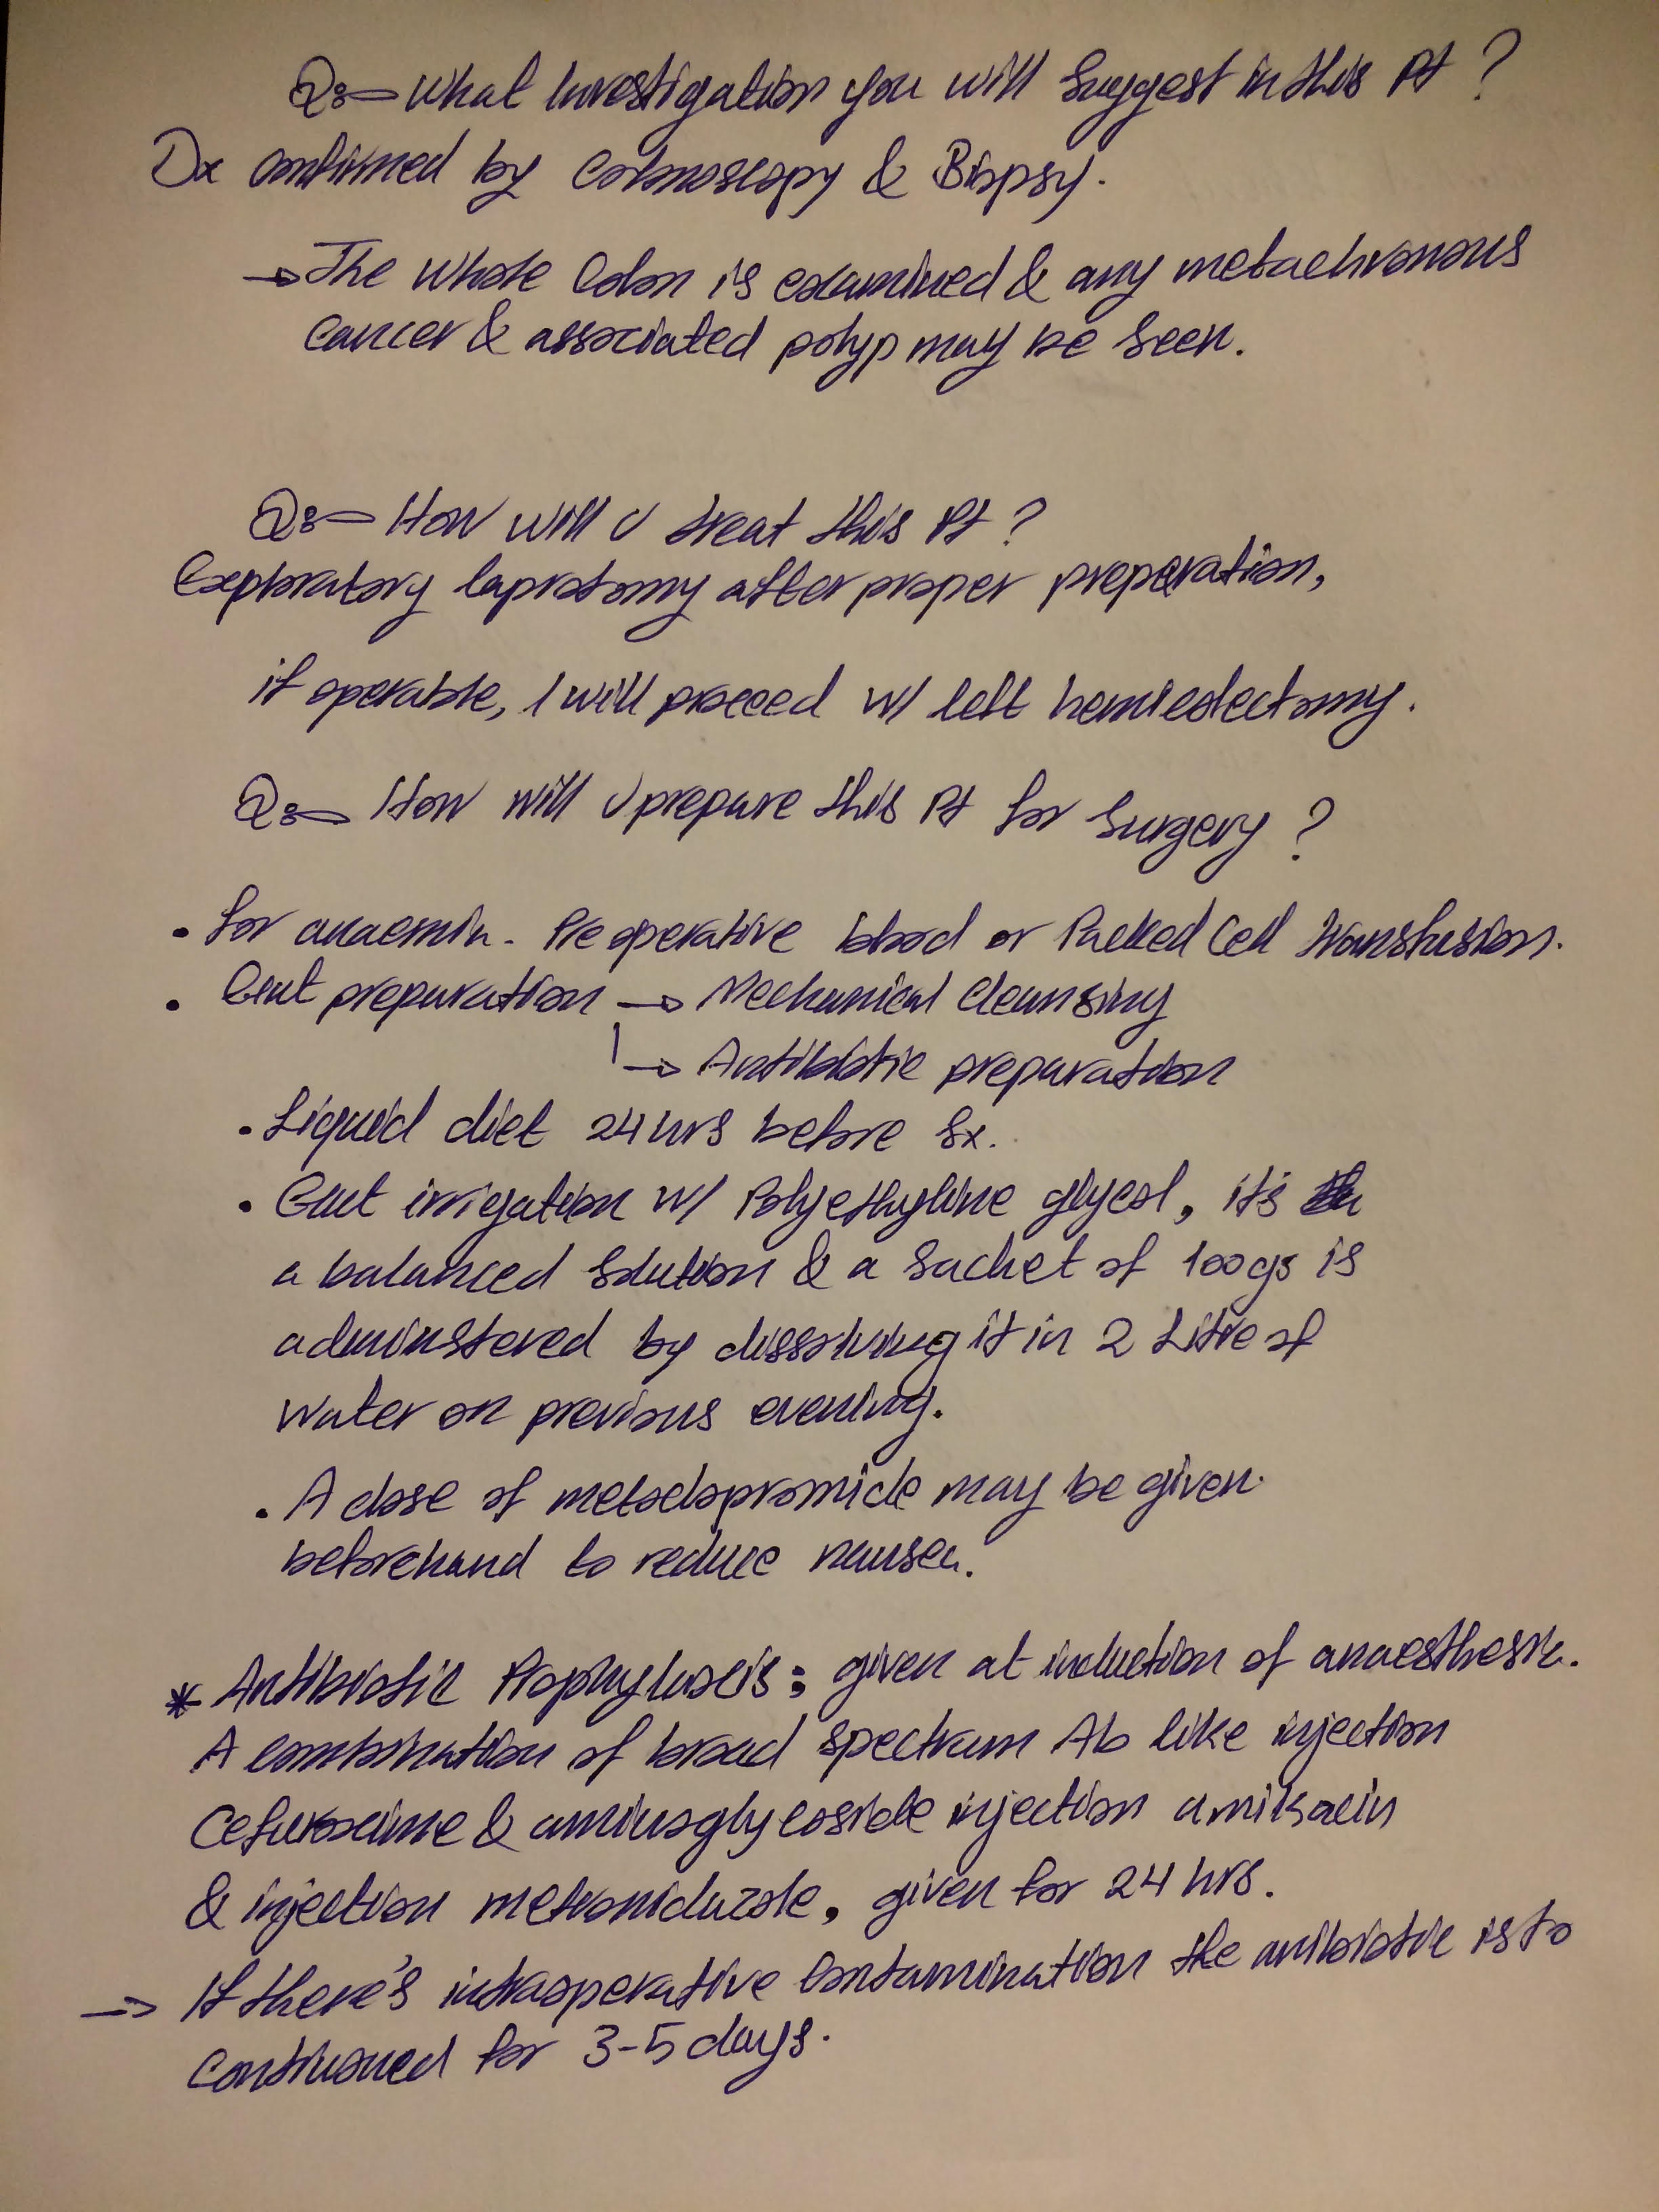 Q:- What Investigation you will Suggest in this Pt ?
Dx confirmed by Colonoscopy & Biopsy.
→ The whole Colon is examined & any metachronous
cancer & associated polyp may be seen.
Q:- How will U treat this Pt ?
Exploratory laprotomy after proper preperation,
if operable, I will proceed w/ left hemicolectomy.
Q:- How will U prepare this Pt for Surgery ?
• for anaemia - Preoperative blood or Packed Cell transfusion.
• Gut preparation → Mechanical Cleansing
→ Antibiotic preparation
• Liquid diet 24 hrs before Sx.
• Gut irrigation w/ Polyethyline glycol, its
a balanced Solution & a Sachet of 100gs is
adminstered by dissolving it in 2 Litre of
water on previous evening.
• A dose of metoclopromide may be given
beforehand to reduce nausea.
* Antibiotic Prophylaxis: given at induction of anaesthesia.
A combination of broad spectrum Ab like injection
Cefuroxime & aminoglycoside injection amikacin
& injection metronidazole, given for 24 hrs.
→ If there's intraoperative Contamination the antibiotic is to
Continued for 3-5 days.